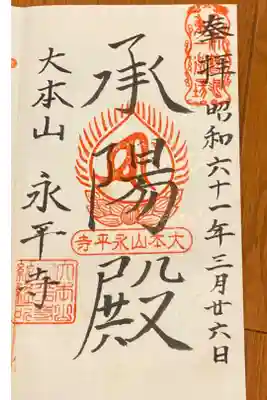 奉拝 昭和六十一年三月廿六日
承陽殿
大本山永平寺
大本山 永平寺